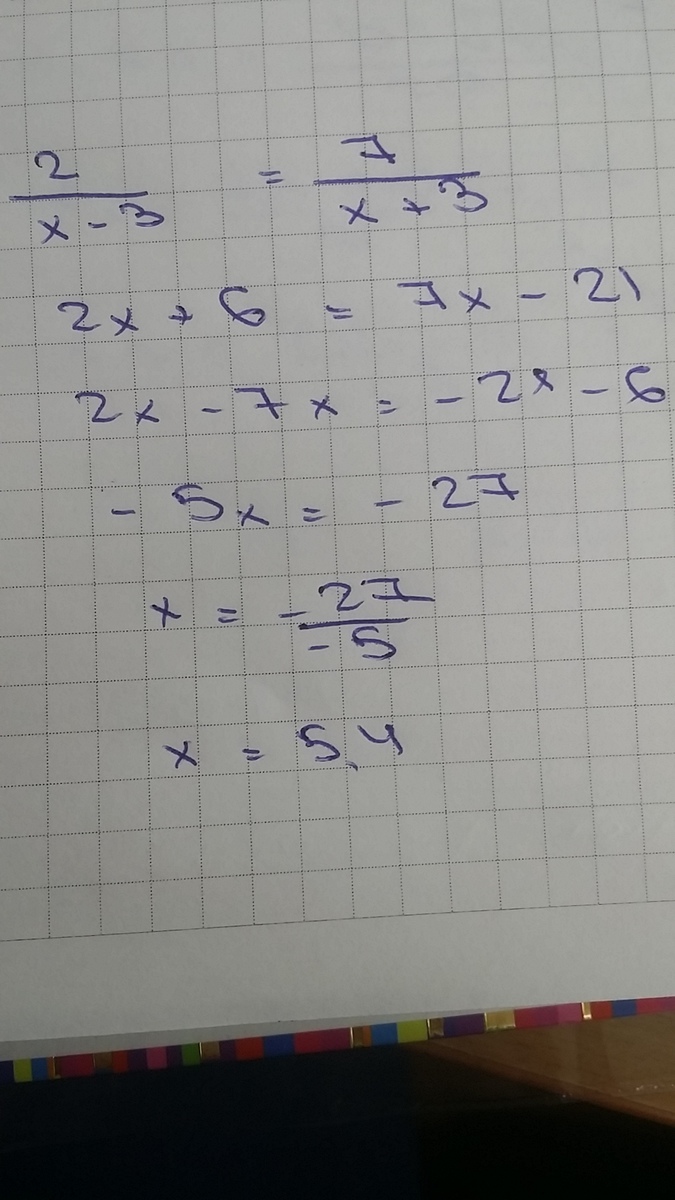 2/(x - 3) = 7/(x + 3)
2x + 6 = 7x - 21
2x - 7x = - 2x - 6
- 5x = - 27
x = - 27/- 5
x = 5,4